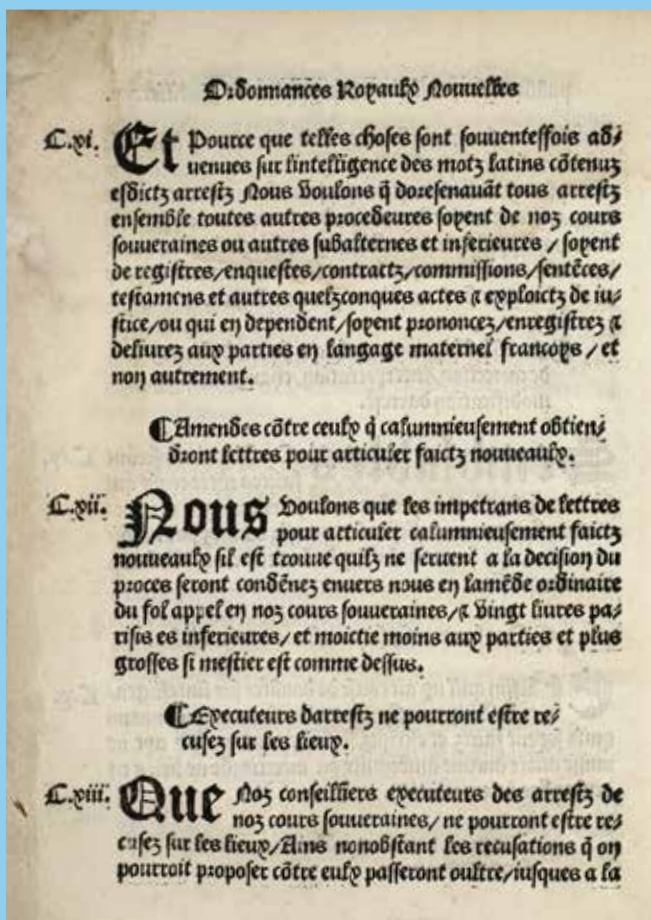 Ordonnances Royaulx Nouvelles
C.xi. Et Pource que telles choses sont souuenteffois ad/
uenues sur lintelligence des motz latins cōtenuz
esdictz arrestz Nous Voulons q̄ doresenauāt tous arrestz
ensemble toutes autres procedeures soyent de noz cours
souueraines ou autres subalternes et inferieures / soyent
de registres/enquestes/contractz/commissions/sentēces/
testamens et autres quelzconques actes ⁊ exploictz de iu/
stice/ou qui en dependent/soyent prononcez/enregistrez ⁊
deliurez aux parties en langage maternel francoys / et
non autrement.
¶Amendes cōtre ceulx q̄ calumnieusement obtien/
dront lettres pour articuler faictz nouueaulx.
C.xii. Nous Voulons que les impetrans de lettres
pour articuler calumnieusement faictz
nouueaulx sil est trouue quilz ne seruent a la decision du
proces seront condēnez enuers nous en lamēde ordinaire
du fol appel en noz cours souueraines/⁊ Vingt liures pa/
risis es inferieures/ et moictie moins aux parties et plus
grosses si mestier est comme dessus.
¶Executeurs darrestz ne pourront estre re/
cusez sur les lieux.
C.xiii. Que Noz conseilliers executeurs des arrestz de
noz cours souueraines/ ne pourront estre re/
cusez sur les lieux/Ains nonobstant les recusations q̄ on
pourroit proposer cōtre eulx passeront oultre/iusques a la